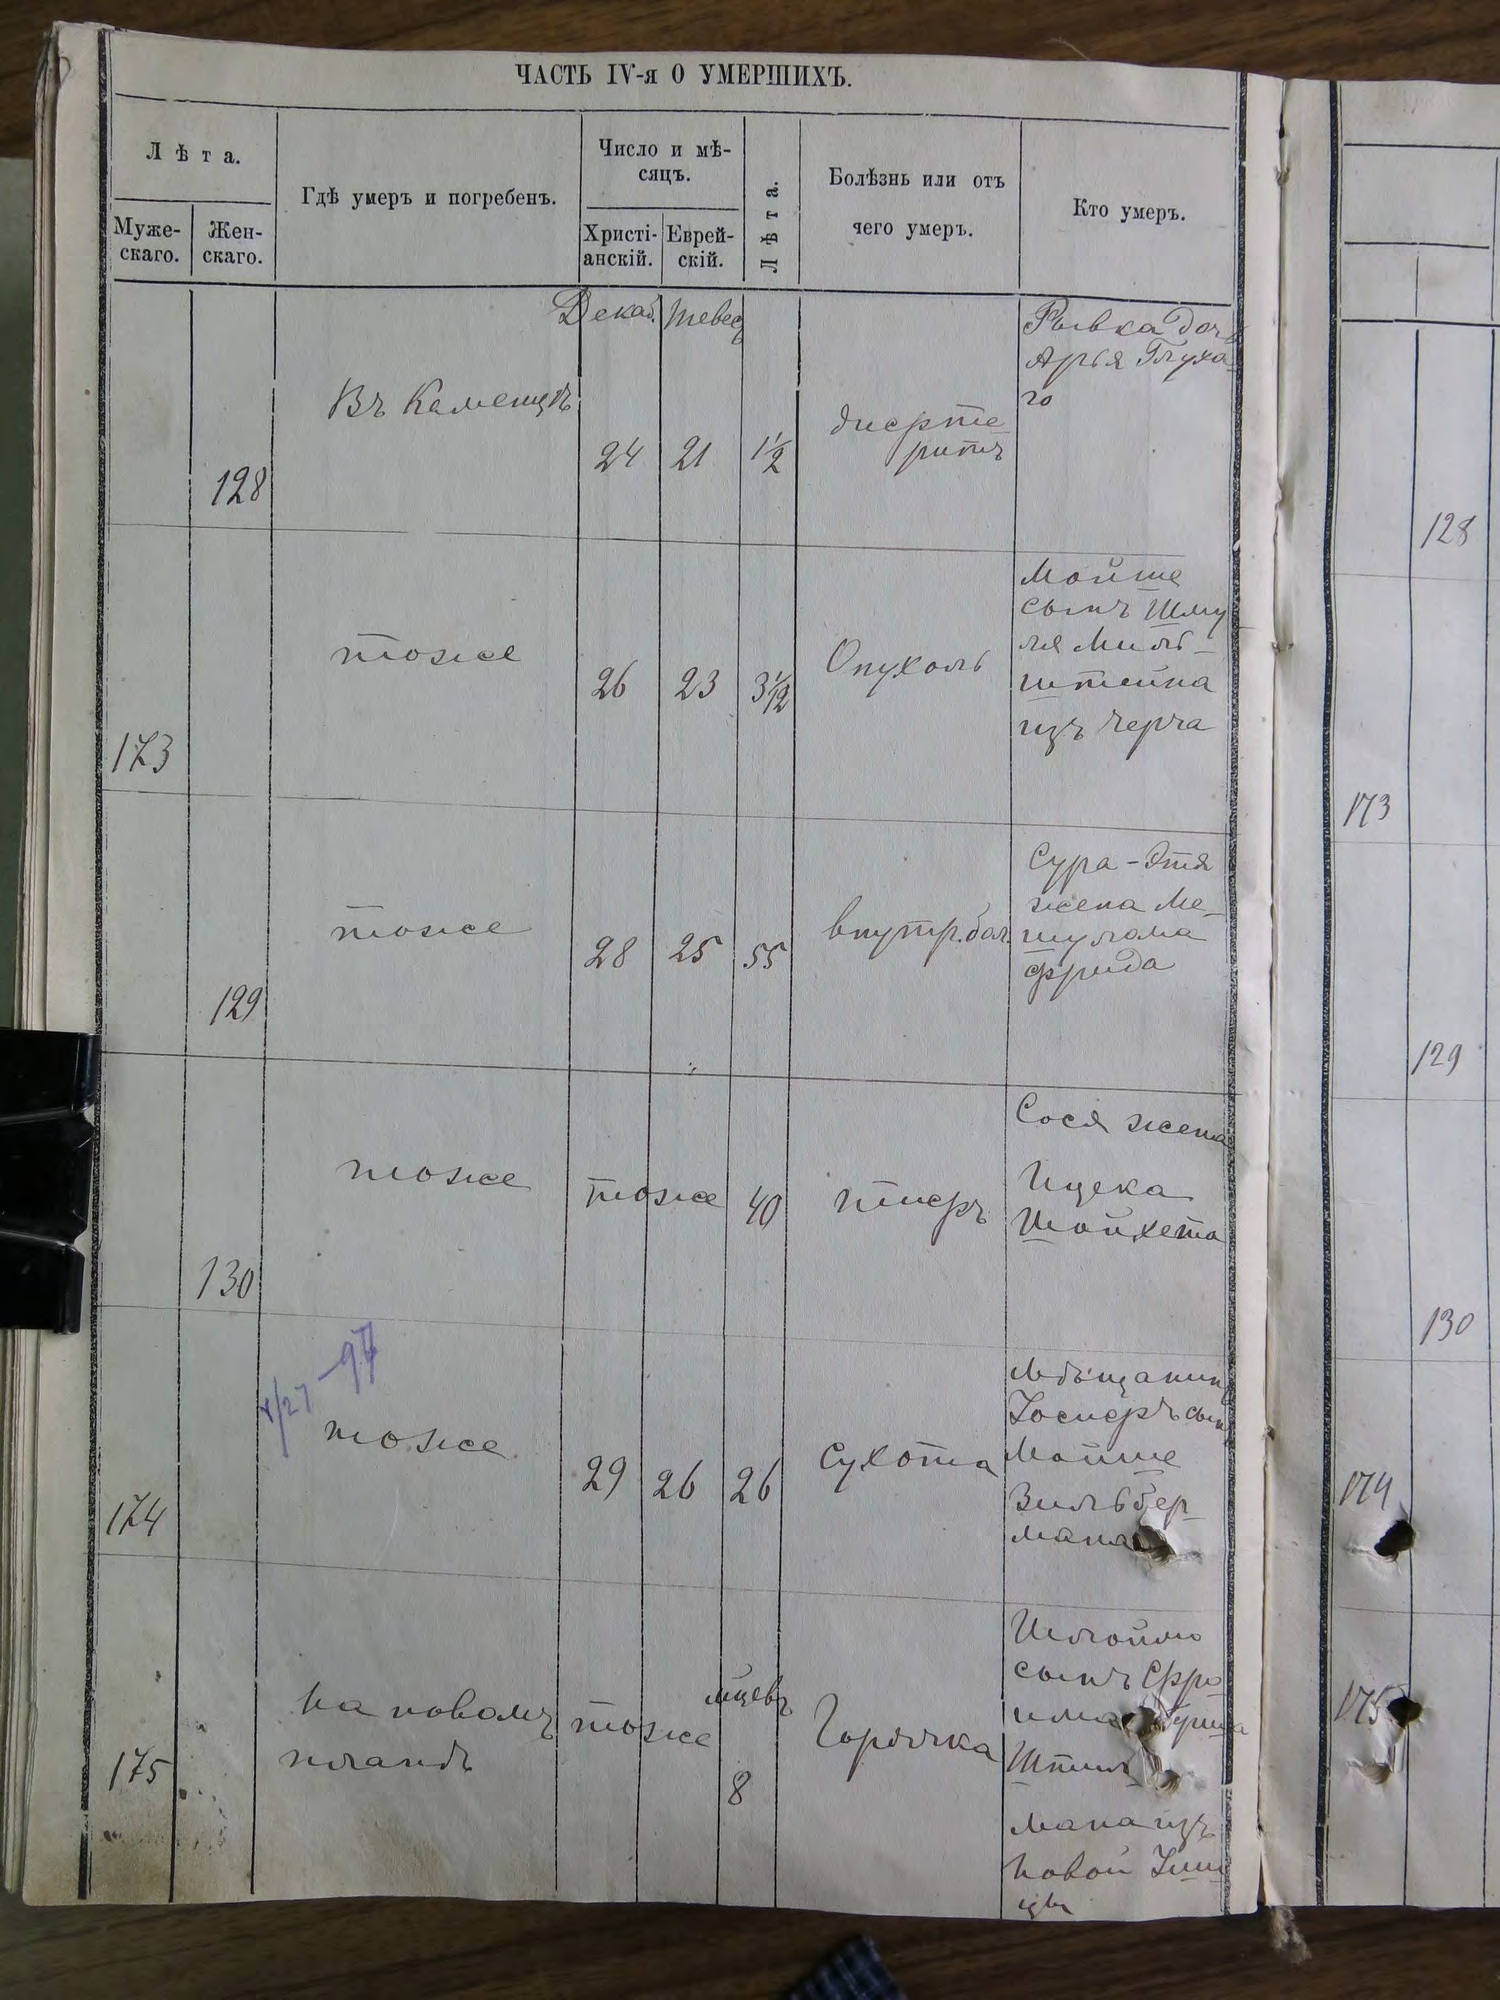 ЧАСТЬ IV-я О УМЕРШИХЪ.
Лѣта.
Муже-
скаго.
Жен-
скаго.
Гдѣ умеръ и погребенъ.
Число и мѣ-
сяцъ.
Христі-
анскій.
Еврей-
скій.
Лѣта.
Болѣзнь или отъ
чего умеръ.
Кто умеръ.
128
Въ Каменцѣ
Декаб. Тевес
24 21 1½
дифте
ритъ
Рывка дочь
Арья Глуха-
го
128
173
тоже
26 23 3/12
Опухоль
Мойше
сынъ Шму
ля Миль-
штейна
изъ Черча
173
129
тоже
28 25 55
внутр. бол.
Сура-Этя
жена Ме-
шулома
Фрида
129
130
тоже
тоже 40
тифъ
Сося жена
Ицека
Шойхета
130
4/27-97
174
тоже
29 26 26
Сухота
Мѣщанинъ
Іосифъ сынъ
Мойше
Зильбер-
мана
174
175
на новомъ
планѣ
тоже
мцевъ
8
Горячка
Шлоймо
сынъ Фро
има
Штиль-
мана изъ
Новой
цы
175